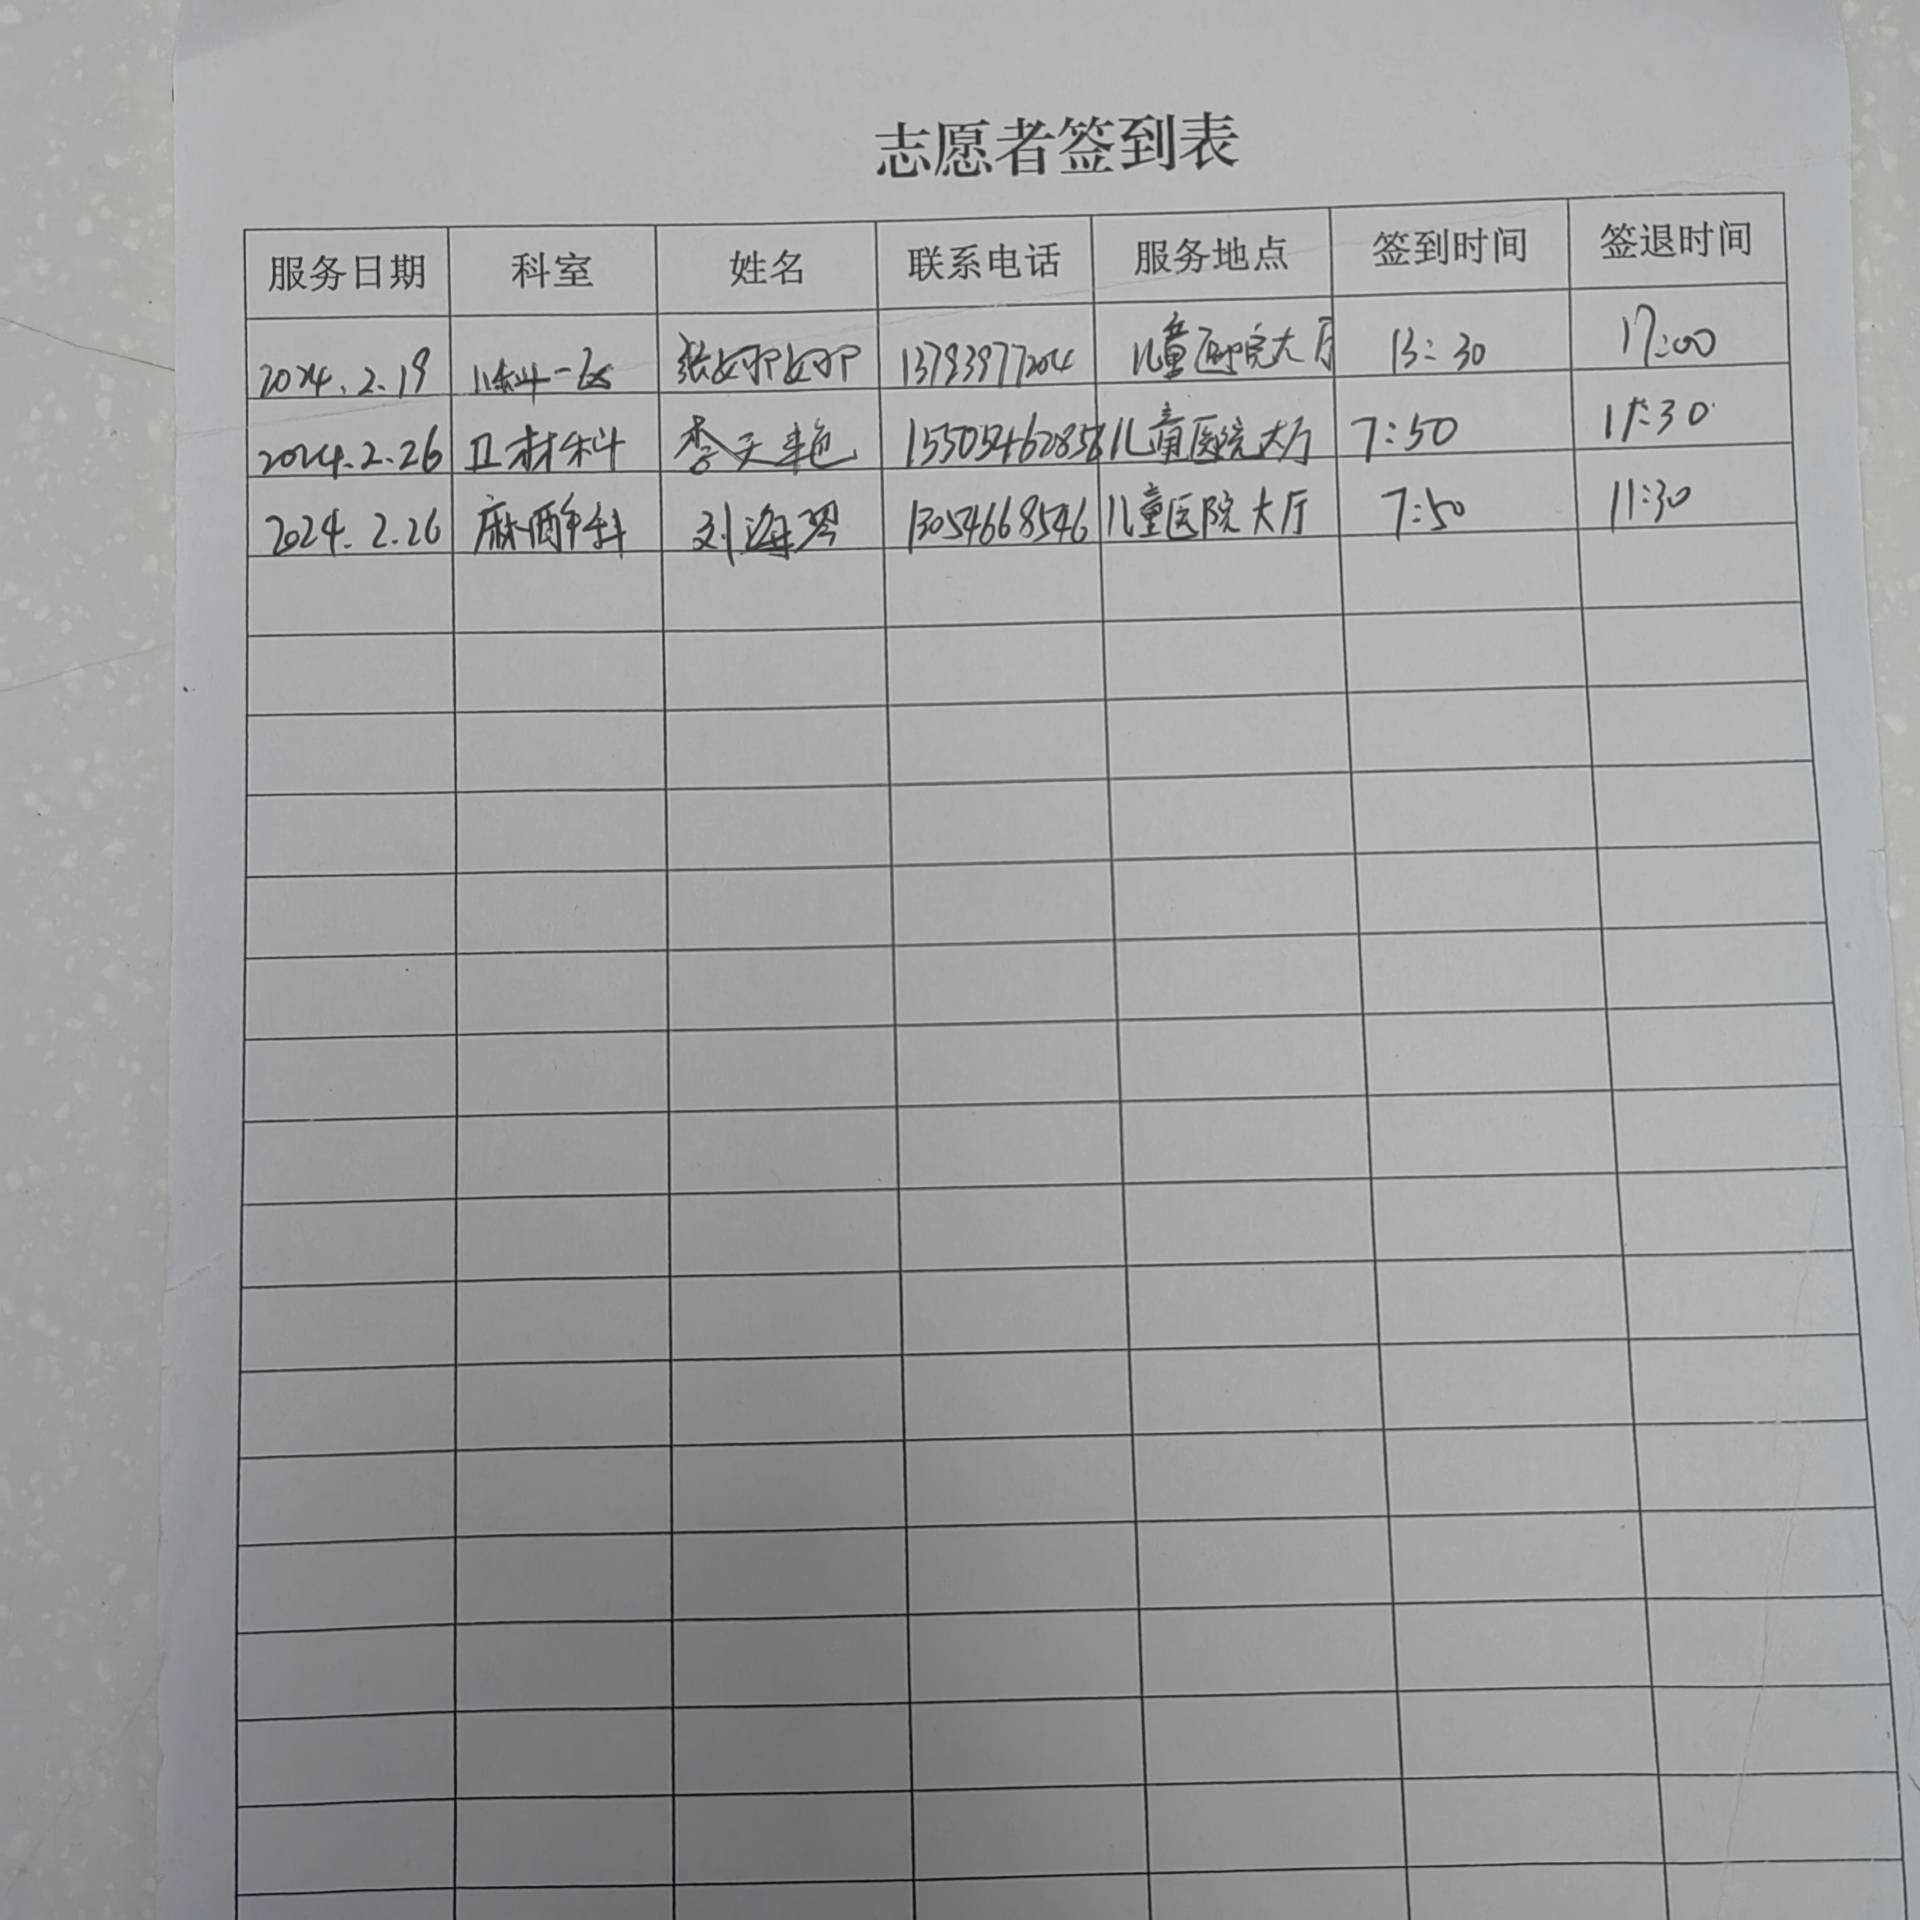 志愿者签到表
服务日期 科室 姓名 联系电话 服务地点 签到时间 签退时间
2024.2.19 儿科一区 张婷婷 13793977204 儿童医院大厅 13:30 17:00
2024.2.26 卫材科 李天艳 儿童医院大厅 7:50 11:30
2024.2.26 麻醉科 刘海琴 13054668546 儿童医院大厅 7:50 11:30